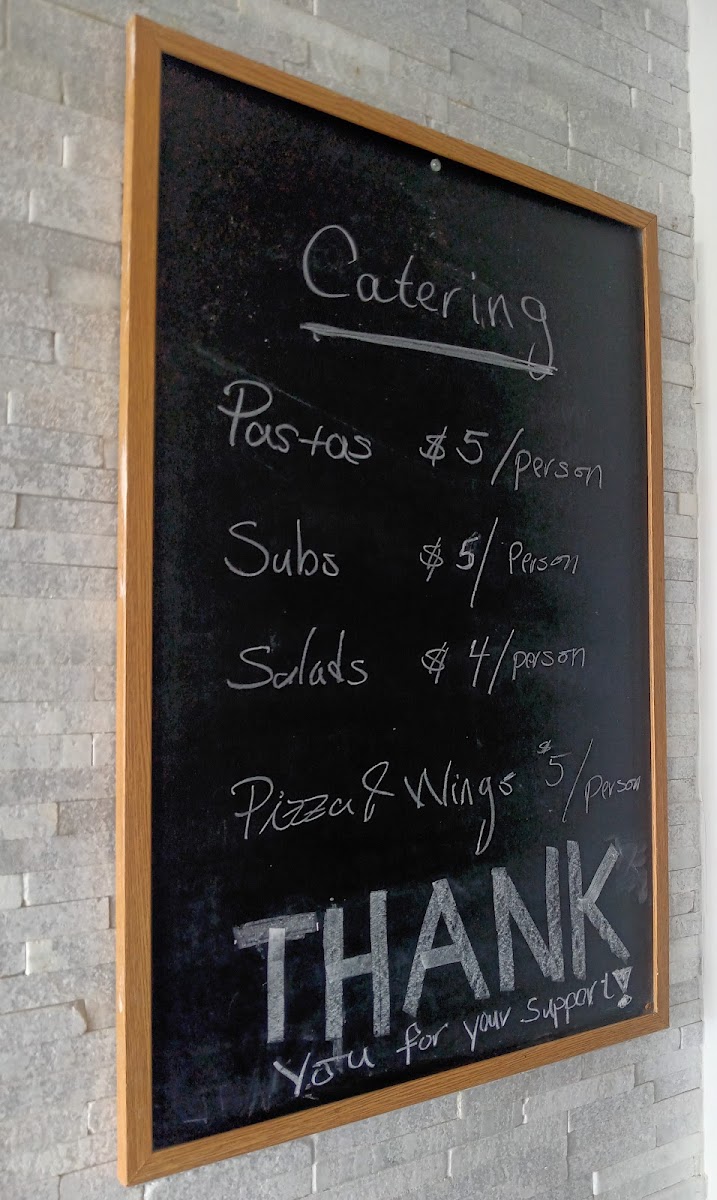 Catering
Pastas $5/person
Subs $5/Person
Salads $4/person
Pizza & Wings $5/person
THANK
you for your support!